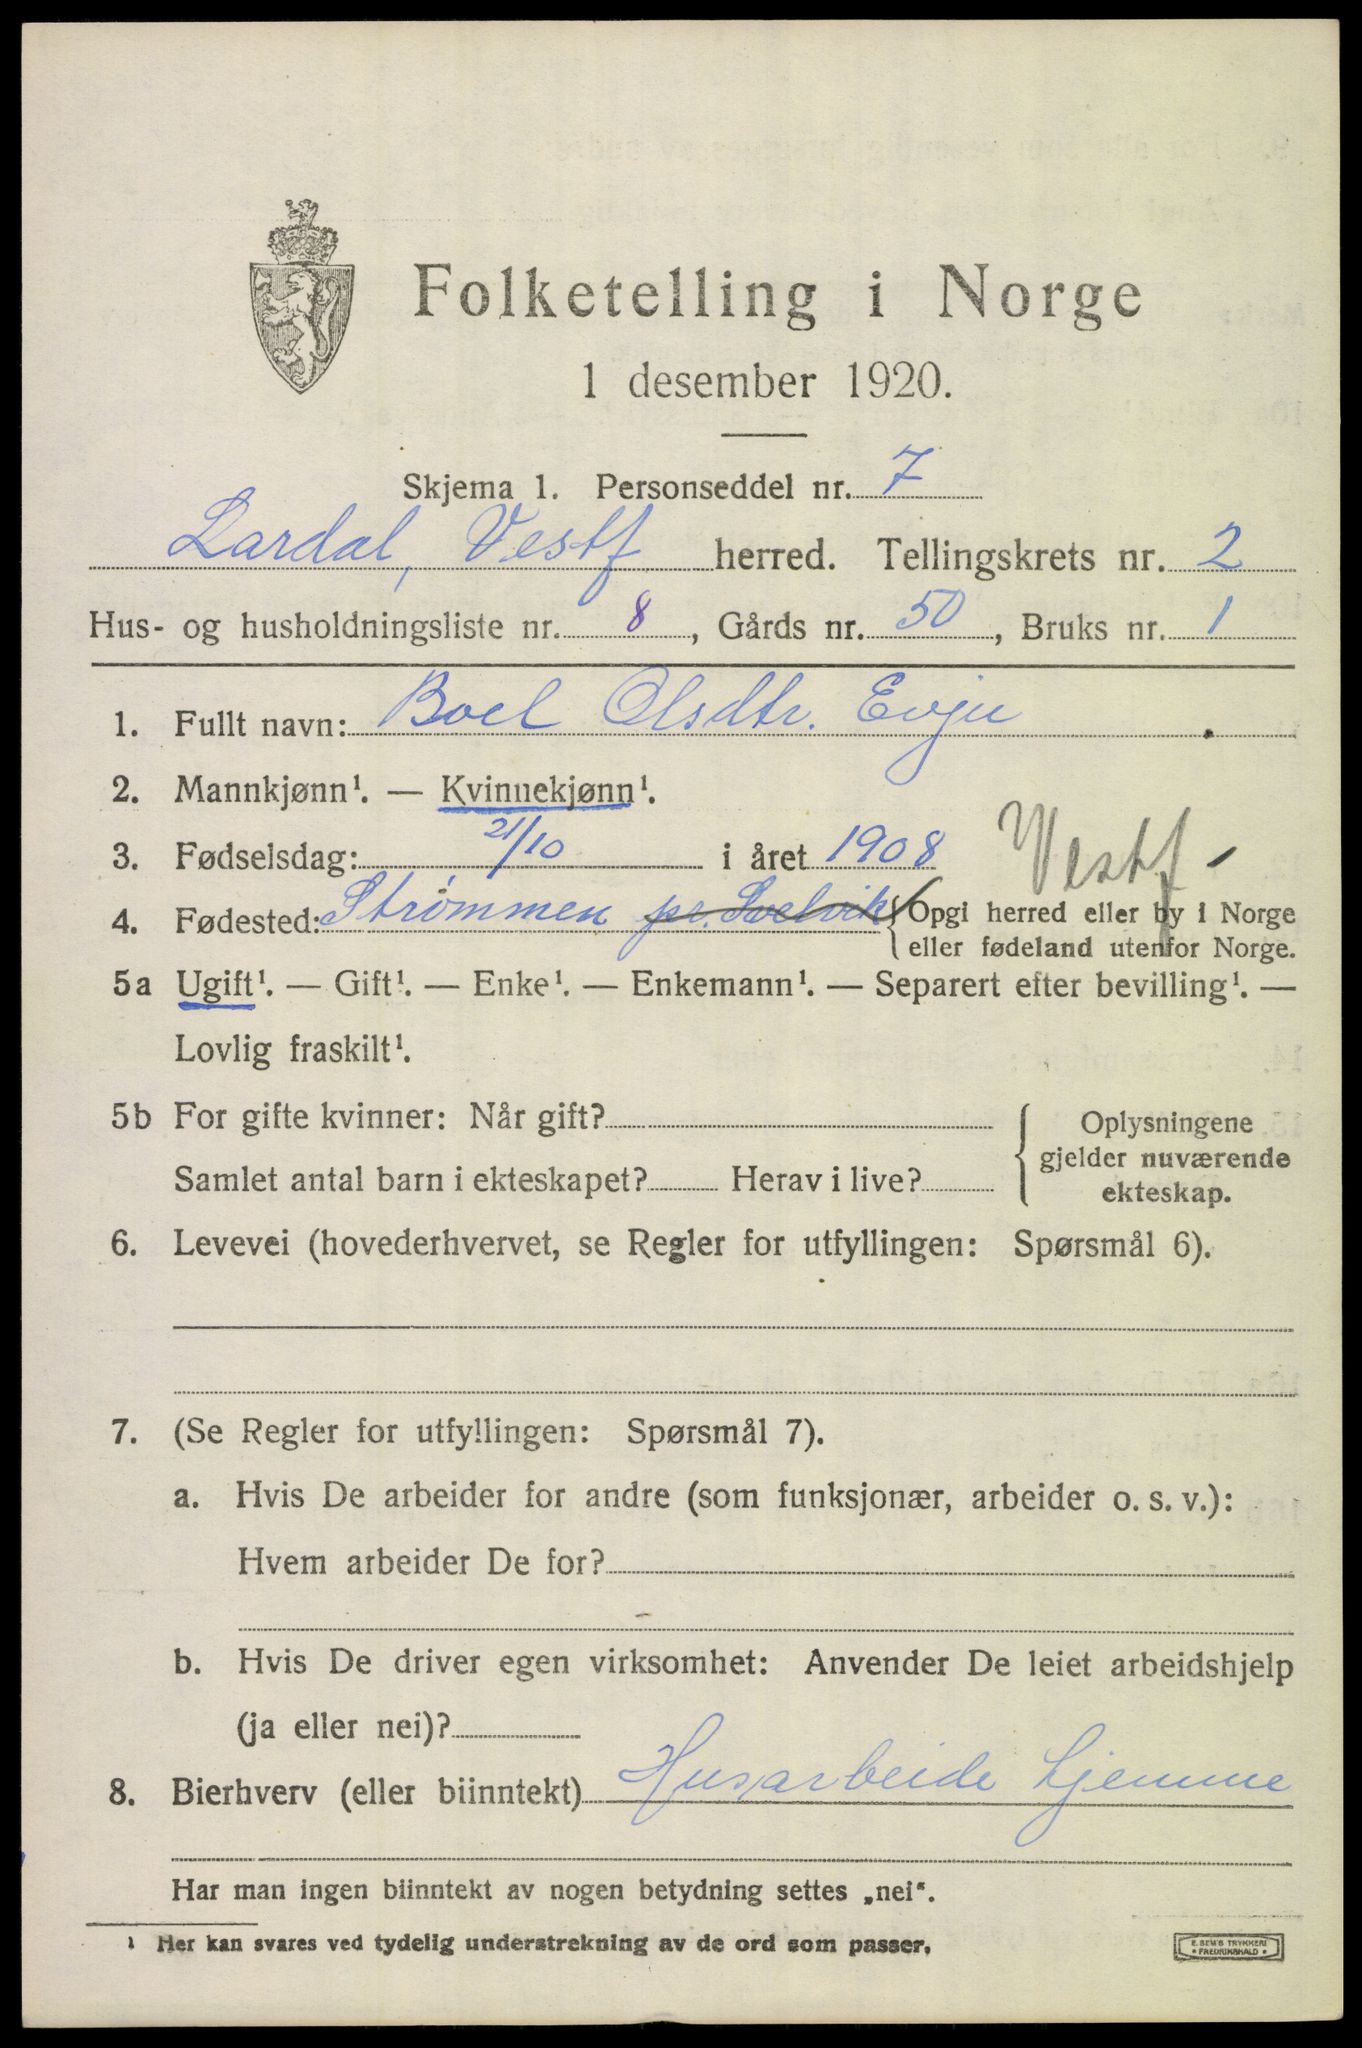 Folketelling i Norge
1 desember 1920.
Skjema 1. Personseddel nr. 7
Lardal, Vestf. herred. Tellingskrets nr. 2
Hus- og husholdningsliste nr. 8, Gårds nr. 50, Bruks nr. 1
1. Fullt navn: Boel Olsdtr. Evju
2. Mannkjønn¹. — Kvinnekjønn¹.
3. Fødselsdag: 21/10 i året 1908 Vestf
4. Fødested: Strømmen pr. Svelvik { Opgi herred eller by i Norge
eller fødeland utenfor Norge.
5a Ugift¹. — Gift¹. — Enke¹. — Enkemann¹. — Separert efter bevilling¹. —
Lovlig fraskilt¹.
5b For gifte kvinner: Når gift?
Samlet antal barn i ekteskapet? Herav i live?
Oplysningene
gjelder nuværende
ekteskap.
6. Levevei (hovederhvervet, se Regler for utfyllingen: Spørsmål 6).
7. (Se Regler for utfyllingen: Spørsmål 7).
a. Hvis De arbeider for andre (som funksjonær, arbeider o. s. v.):
Hvem arbeider De for?
b. Hvis De driver egen virksomhet: Anvender De leiet arbeidshjelp
(ja eller nei)?
8. Bierhverv (eller biinntekt) Husarbeide hjemme
Har man ingen biinntekt av nogen betydning settes „nei“.
¹ Her kan svares ved tydelig understrekning av de ord som passer.
E. SEM'S TRYKKERI
• FREDRIKSHALD •